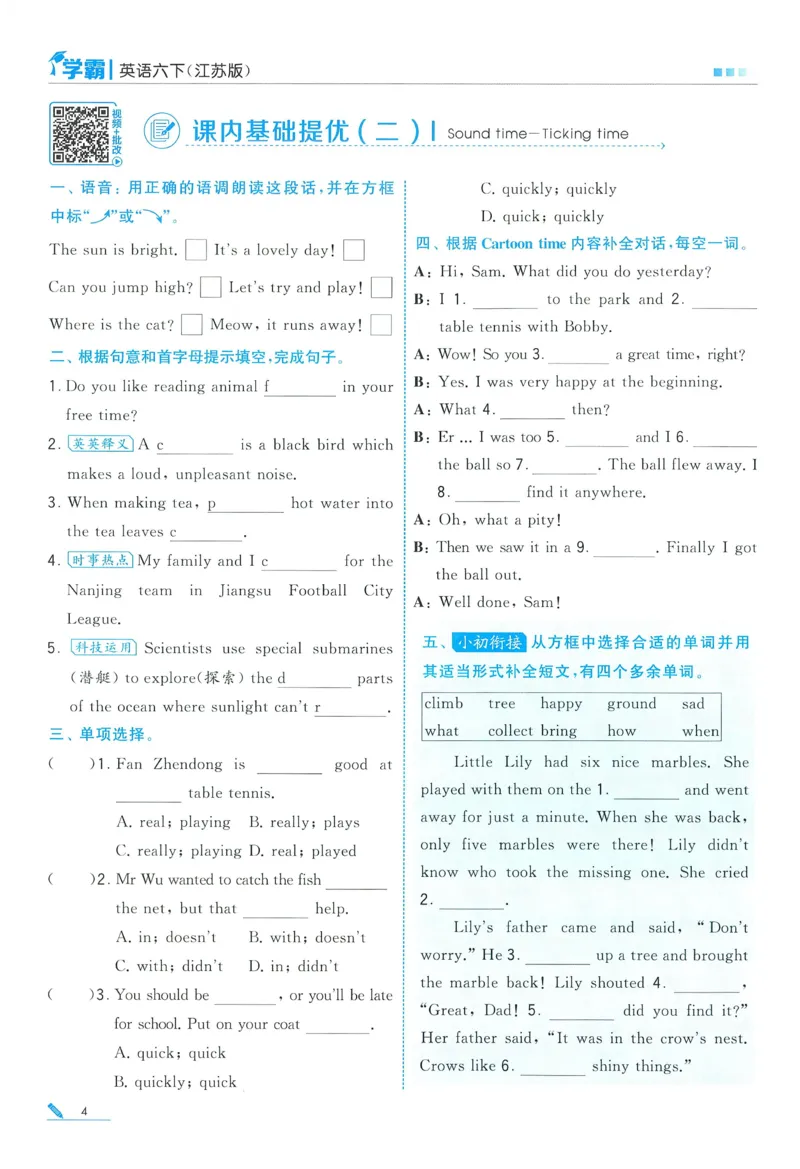 学霸 英语六下(江苏版)
视频+批改
课内基础提优(二) Sound time—Ticking time
一、语音：用正确的语调朗读这段话,并在方框
中标“↗”或“↘”。
The sun is bright. □ It's a lovely day! □
Can you jump high? □ Let's try and play! □
Where is the cat? □ Meow, it runs away! □
二、根据句意和首字母提示填空,完成句子。
1. Do you like reading animal f________ in your
free time?
2. 英英释义 A c________ is a black bird which
makes a loud, unpleasant noise.
3. When making tea, p________ hot water into
the tea leaves c________.
4. 时事热点 My family and I c________ for the
Nanjing team in Jiangsu Football City
League.
5. 科技运用 Scientists use special submarines
(潜艇) to explore(探索) the d________ parts
of the ocean where sunlight can't r________.
三、单项选择。
( )1. Fan Zhendong is ________ good at
________ table tennis.
A. real; playing B. really; plays
C. really; playing D. real; played
( )2. Mr Wu wanted to catch the fish ________
the net, but that ________ help.
A. in; doesn't B. with; doesn't
C. with; didn't D. in; didn't
( )3. You should be ________, or you'll be late
for school. Put on your coat ________.
A. quick; quick
B. quickly; quick
C. quickly; quickly
D. quick; quickly
四、根据 Cartoon time 内容补全对话,每空一词。
A: Hi, Sam. What did you do yesterday?
B: I 1. ________ to the park and 2. ________
table tennis with Bobby.
A: Wow! So you 3. ________ a great time, right?
B: Yes. I was very happy at the beginning.
A: What 4. ________ then?
B: Er ... I was too 5. ________ and I 6. ________
the ball so 7. ________. The ball flew away. I
8. ________ find it anywhere.
A: Oh, what a pity!
B: Then we saw it in a 9. ________. Finally I got
the ball out.
A: Well done, Sam!
五、小初衔接 从方框中选择合适的单词并用
其适当形式补全短文,有四个多余单词。
climb tree happy ground sad
what collect bring how when
Little Lily had six nice marbles. She
played with them on the 1. ________ and went
away for just a minute. When she was back,
only five marbles were there! Lily didn't
know who took the missing one. She cried
2. ________.
Lily's father came and said, “Don't
worry.” He 3. ________ up a tree and brought
the marble back! Lily shouted 4. ________,
“Great, Dad! 5. ________ did you find it?”
Her father said, “It was in the crow's nest.
Crows like 6. ________ shiny things.”
4